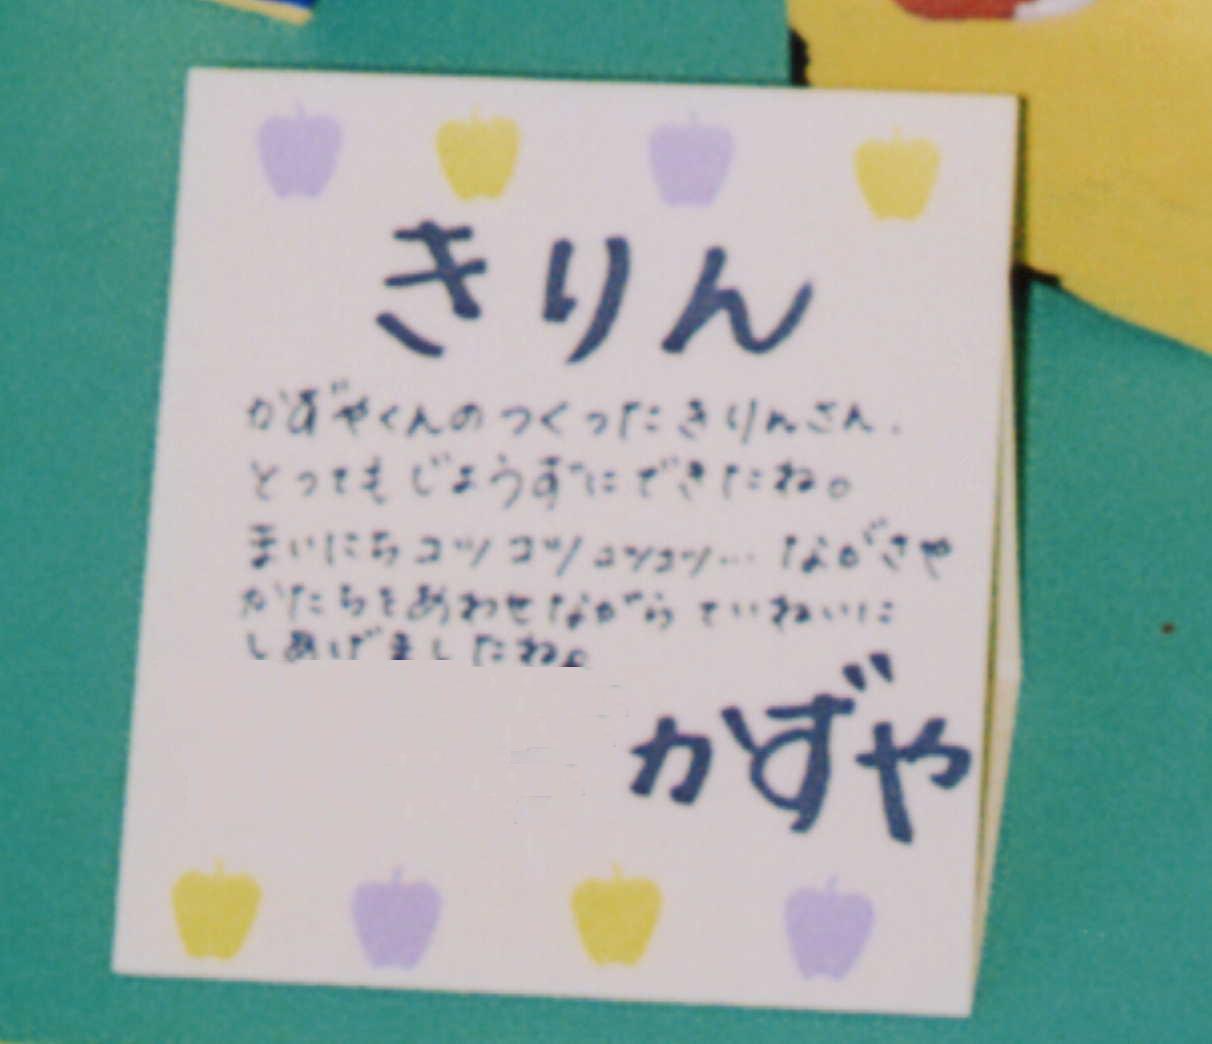 きりん
かずやくんのつくったきりんさん.
とってもじょうずにできたね。
まいにちコツコツコツコツ… ながさや
かたちをあわせながら ていねいに
しあげましたね。
かずや